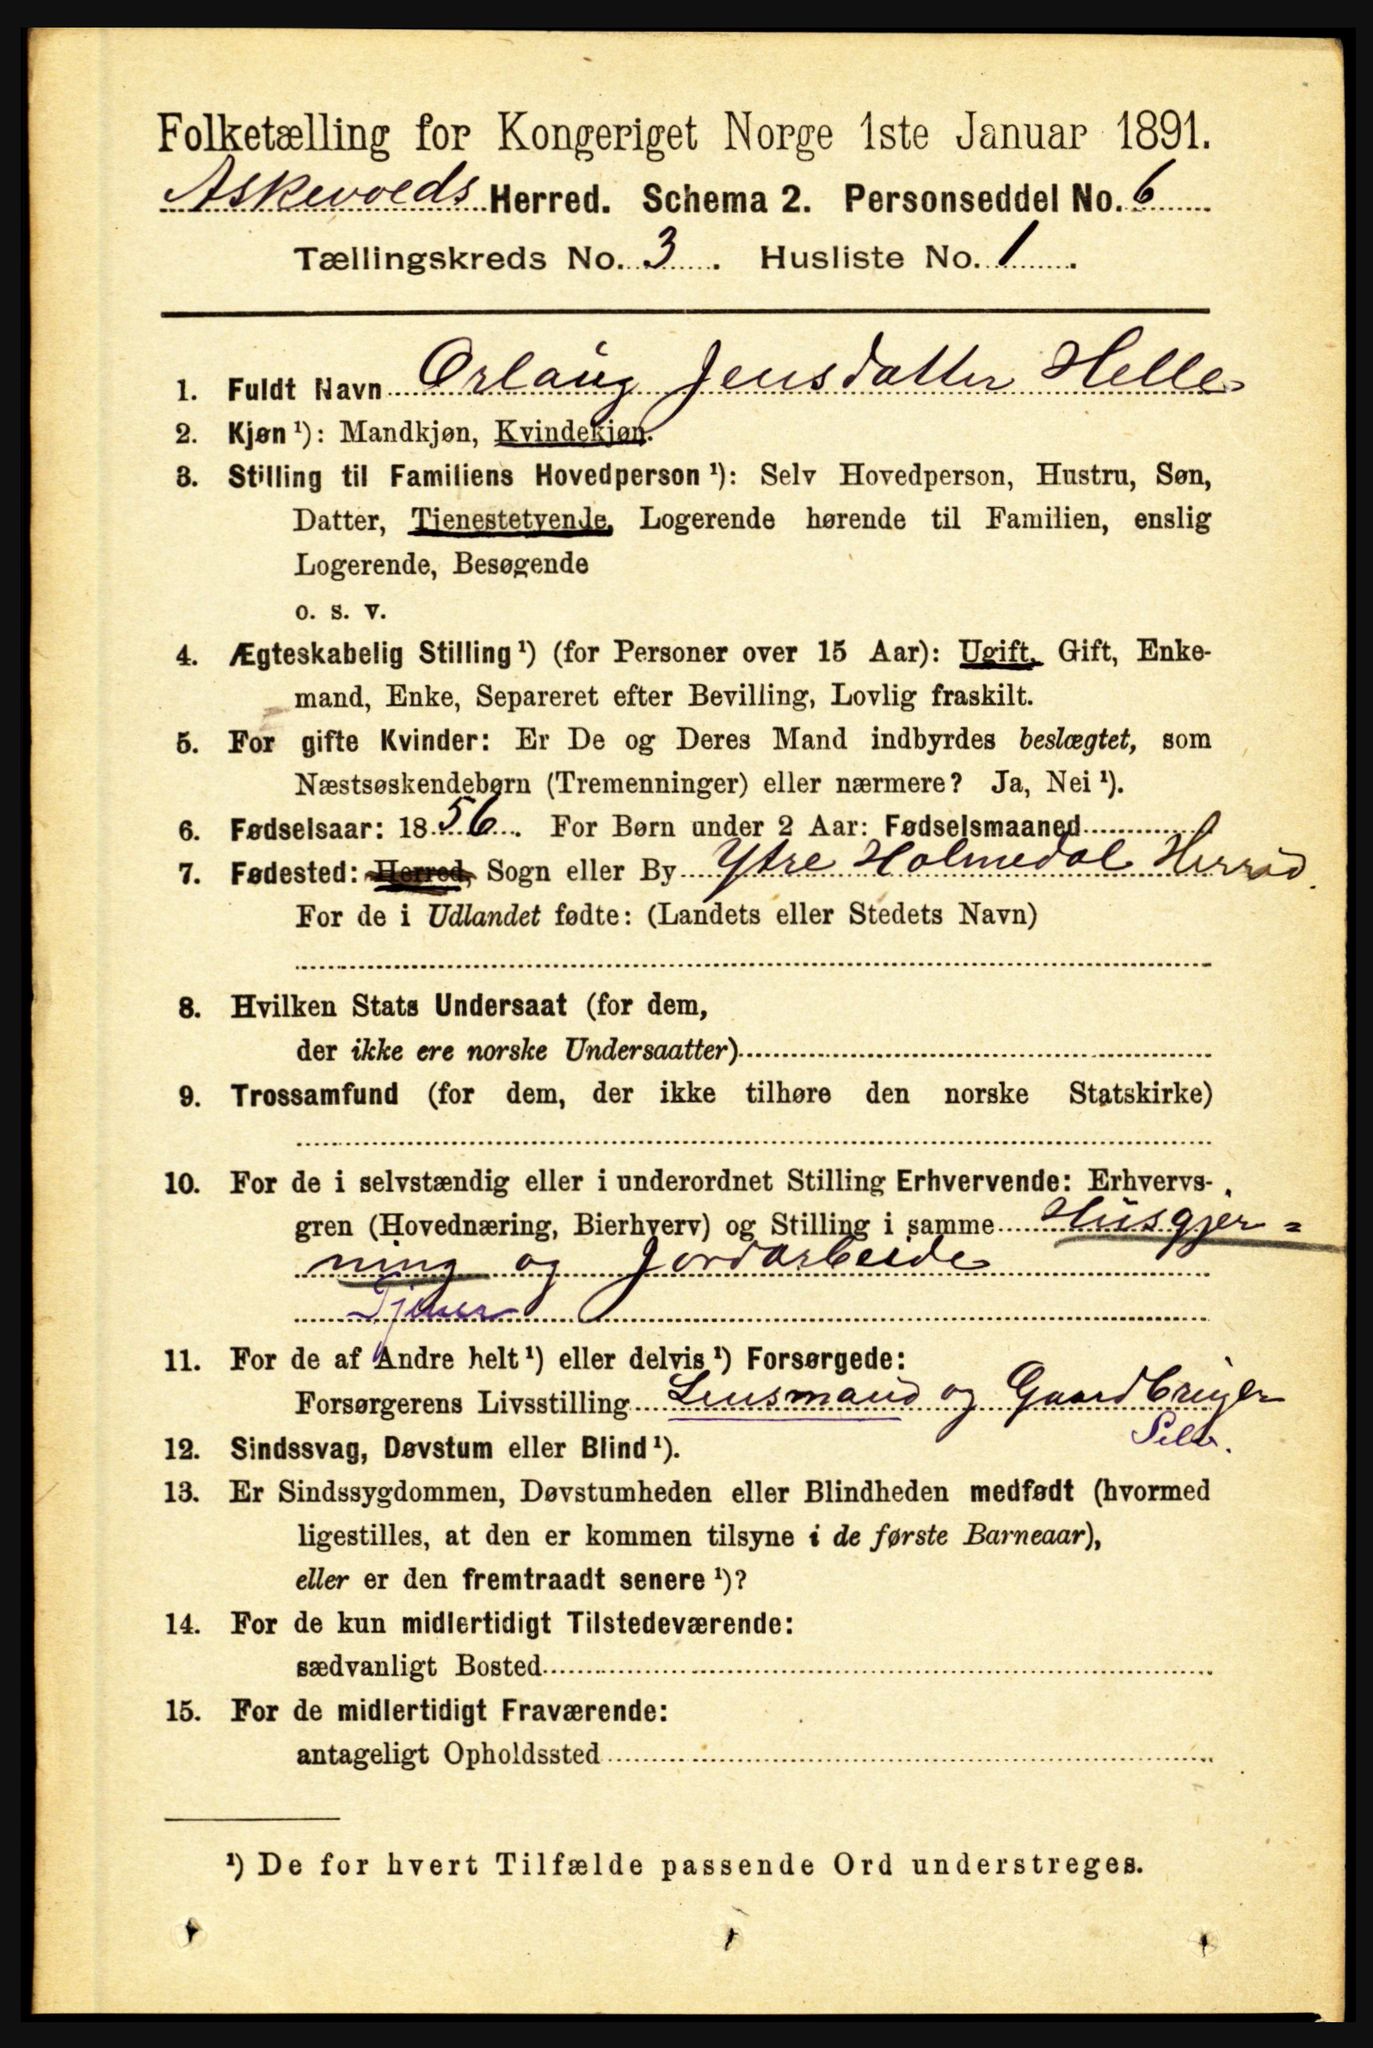 Folketælling for Kongeriget Norge 1ste Januar 1891.
Askevolds Herred. Schema 2. Personseddel No. 6
Tællingskreds No. 3. Husliste No. 1.
1. Fuldt Navn Orlaug Jensdatter Helle
2. Kjøn ¹): Mandkjøn, Kvindekjøn.
3. Stilling til Familiens Hovedperson ¹): Selv Hovedperson, Hustru, Søn,
Datter, Tjenestetyende, Logerende hørende til Familien, enslig
Logerende, Besøgende
o. s. v.
4. Ægteskabelig Stilling ¹) (for Personer over 15 Aar): Ugift, Gift, Enke-
mand, Enke, Separeret efter Bevilling, Lovlig fraskilt.
5. For gifte Kvinder: Er De og Deres Mand indbyrdes beslægtet, som
Næstsøskendebørn (Tremenninger) eller nærmere? Ja, Nei ¹).
6. Fødselsaar: 1856. For Børn under 2 Aar: Fødselsmaaned
7. Fødested: Herred, Sogn eller By Ytre Holmedal Herred.
For de i Udlandet fødte: (Landets eller Stedets Navn)
8. Hvilken Stats Undersaat (for dem,
der ikke ere norske Undersaatter)
9. Trossamfund (for dem, der ikke tilhøre den norske Statskirke)
10. For de i selvstændig eller i underordnet Stilling Erhvervende: Erhvervs-
gren (Hovednæring, Bierhverv) og Stilling i samme Husgjer=
ning og Jordarbeide
Tjener
11. For de af Andre helt ¹) eller delvis ¹) Forsørgede:
Forsørgerens Livsstilling Lensmand og Gaardbruger
Selv.
12. Sindssvag, Døvstum eller Blind ¹).
13. Er Sindssygdommen, Døvstumheden eller Blindheden medfødt (hvormed
ligestilles, at den er kommen tilsyne i de første Barneaar),
eller er den fremtraadt senere ¹)?
14. For de kun midlertidigt Tilstedeværende:
sædvanligt Bosted
15. For de midlertidigt Fraværende:
antageligt Opholdssted
¹) De for hvert Tilfælde passende Ord understreges.